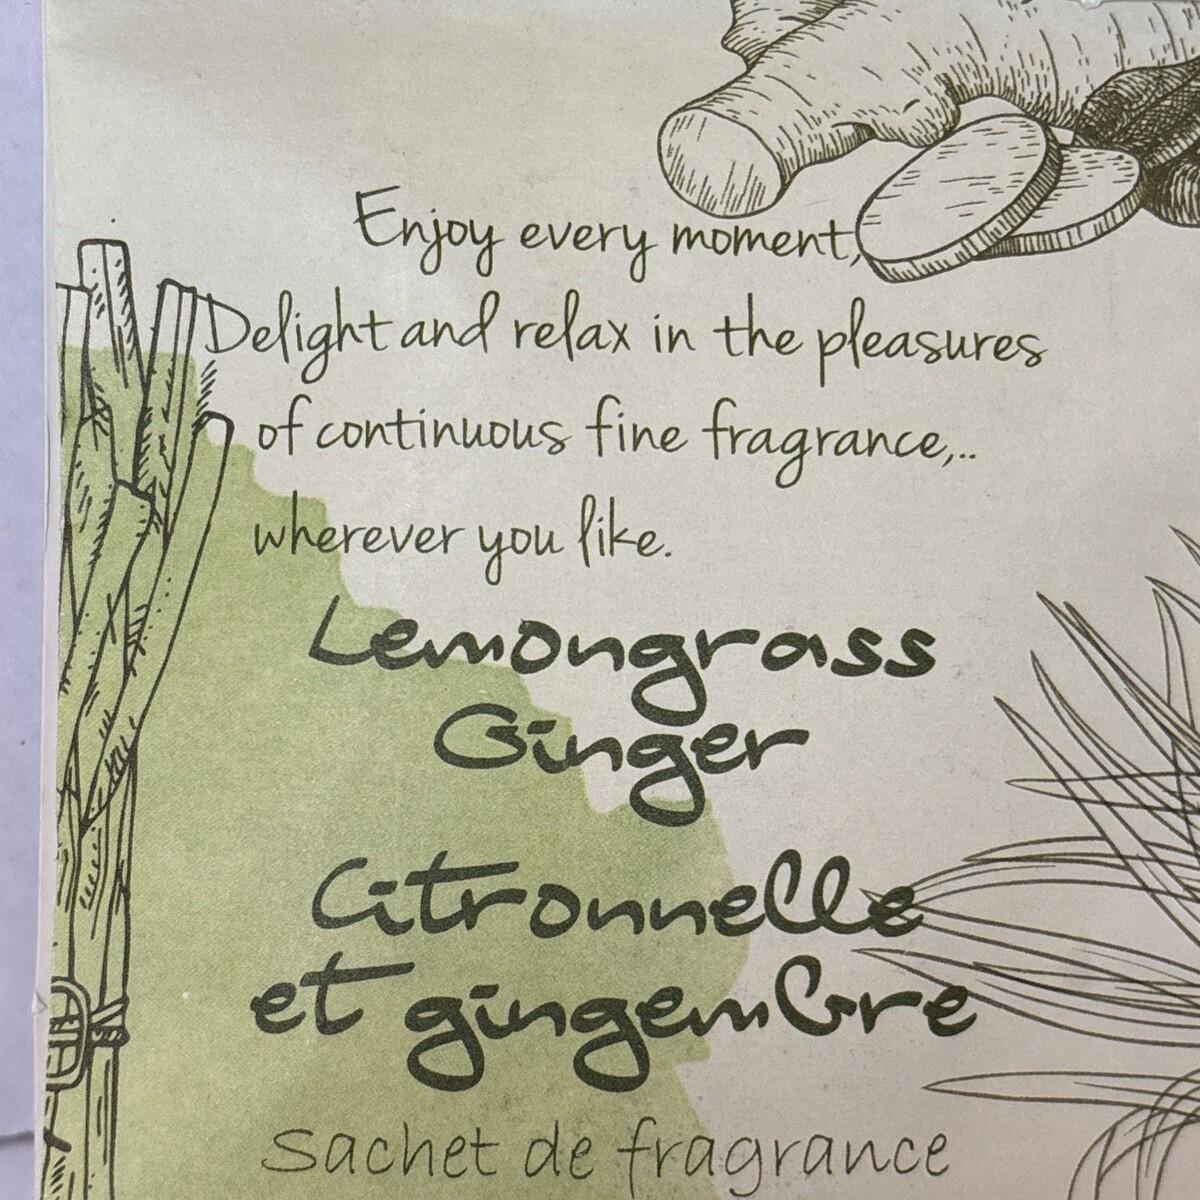 Enjoy every moment,
Delight and relax in the pleasures
of continuous fine fragrance,..
wherever you like.
Lemongrass
Ginger
Citronnelle
et gingembre
Sachet de fragrance